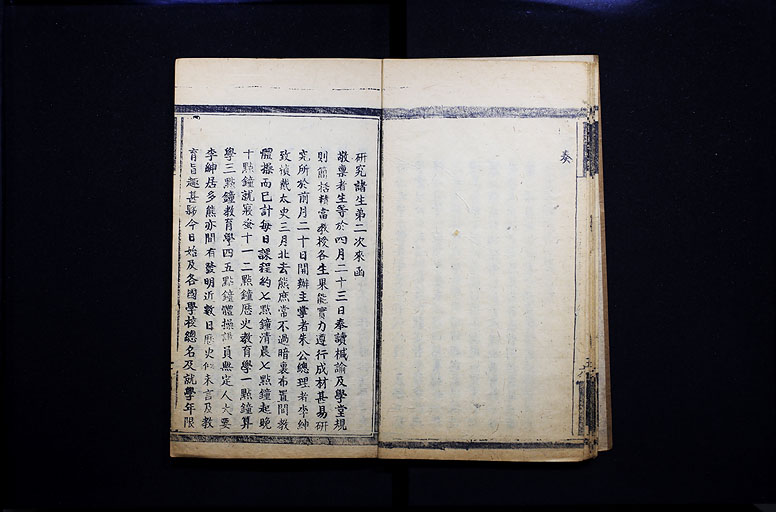 奏
研究諸生第二次來函
敬稟者生等於四月二十三日奉讀椷諭及學堂規
則簡括精當教授各生果能實力遵行成材甚易研
究所於前月二十日開辦主掌者朱公總理者李紳
致禎戴太史三月北去熊庶常不過暗裏布置間教
體操而已計每日課程約七點鐘清晨七點鐘起晚
十點鐘就寢安十一二點鐘歷史教育學一點鐘算
學三點鐘教育學四五點鐘體操講員無定人大要
李紳居多熊亦間有發明近數日歷史似未言及教
育旨趣甚縣今日始及各國學校總名及就學年限